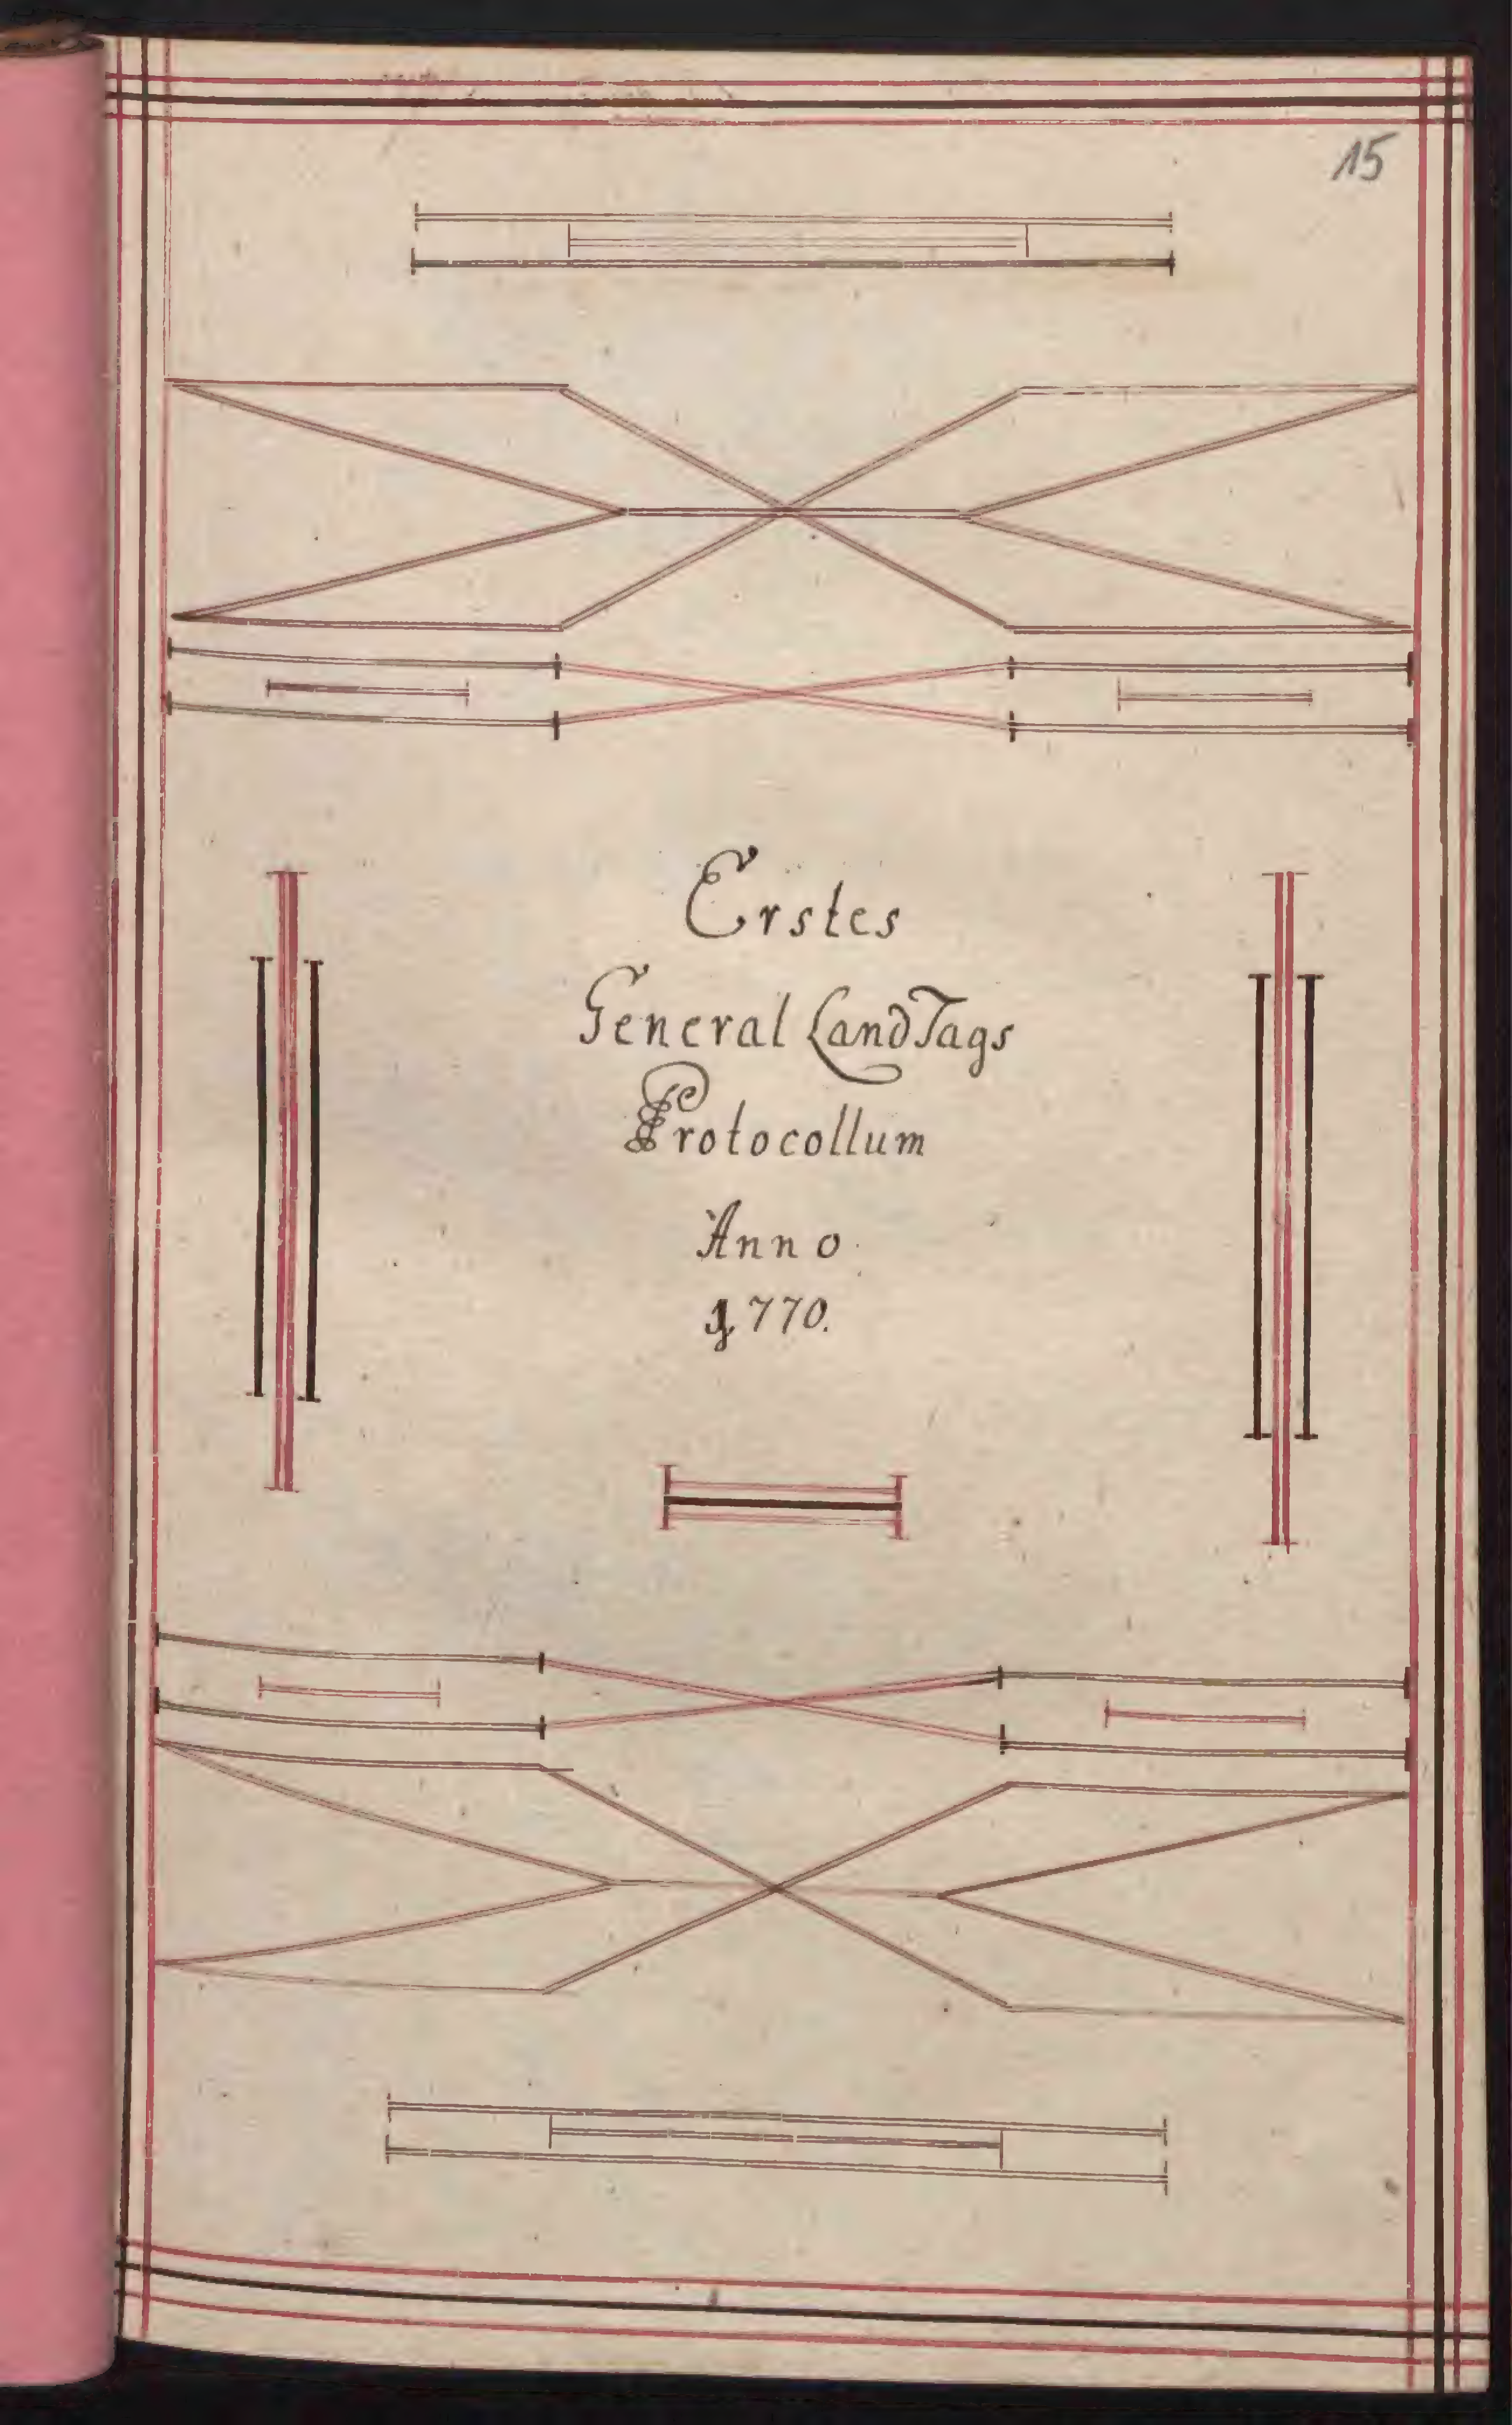 15
Erstes
General LandTags
Protocollum
Anno
1770.